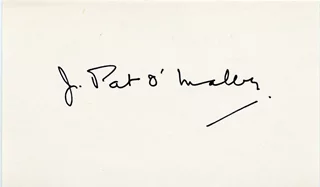 J. Pat O'Malley